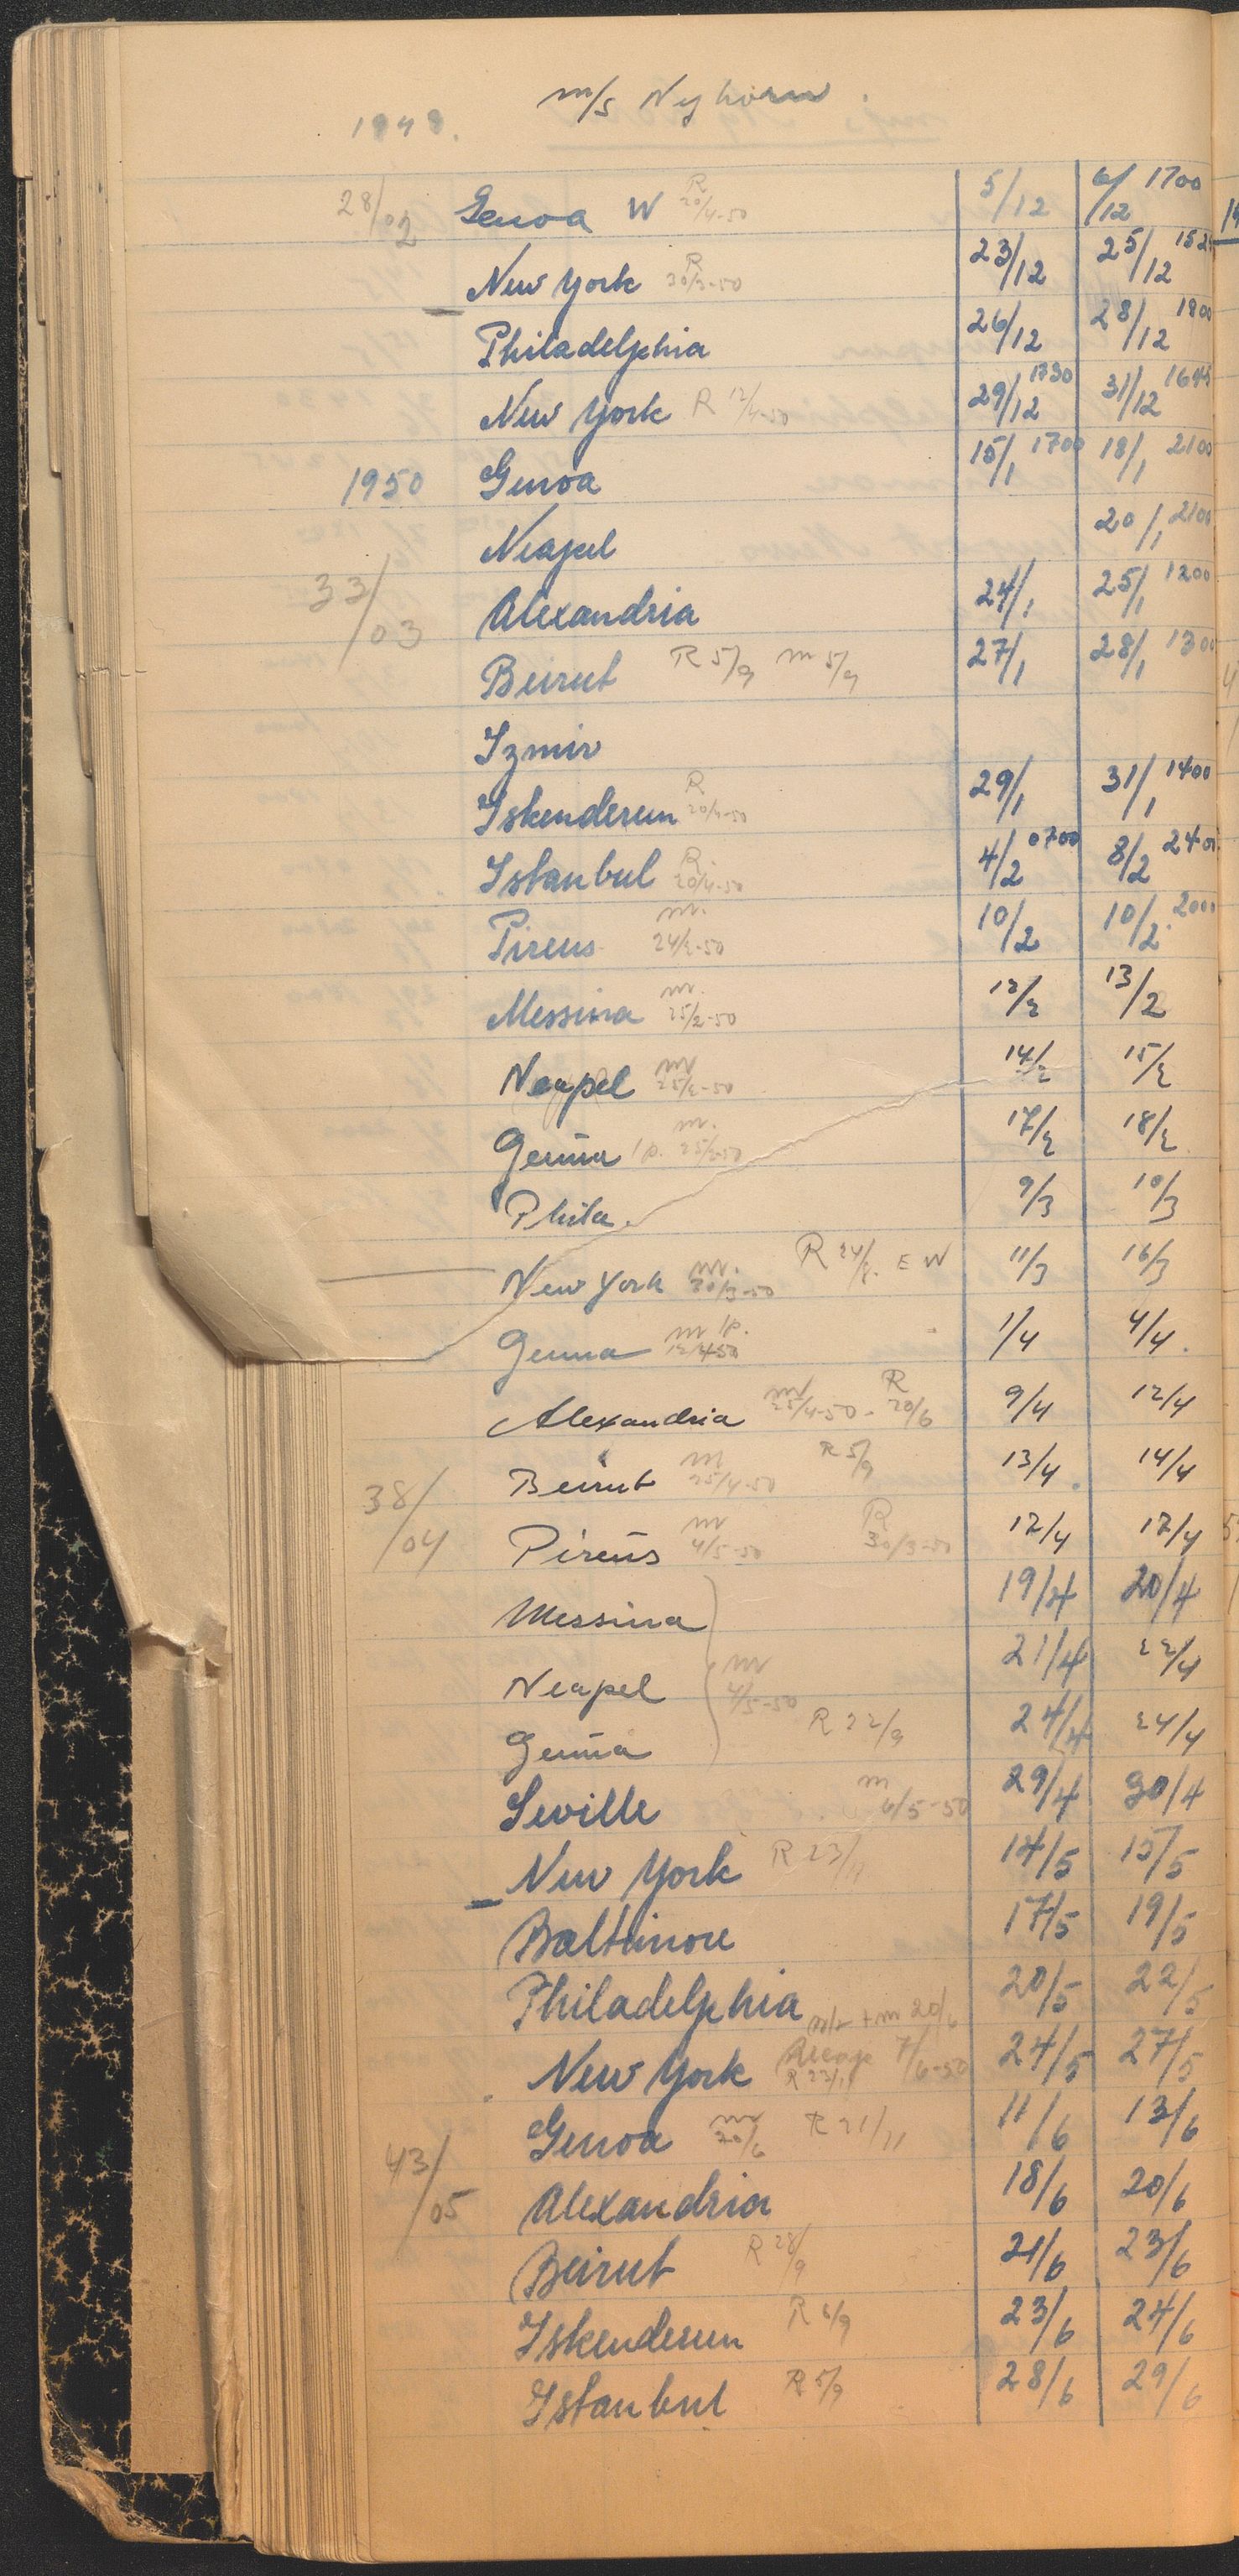 m/s Nyhorn.
194
28/02 Genoa W R 20/4-50 5/12 6/12 1700
New York R 30/3-50 23/12 25/12
Philadelphia 26/12 28/12 1800
New York R 12/4-50 29/12 1730 31/12
1950 Genoa 15/1 1700 18/1 2100
Neapel 20/1 2100
33/03 Alexandria 24/1 25/1 1200
Beirut R 5/9 m 5/9 27/1 28/1 1300
Izmir
Iskenderun R 20/4-50 29/1 31/1 1400
Istanbul R 20/4-50 4/2 0700 8/2 2400
Pireus m. 24/2-50 10/2 10/2 2000
Messina m. 25/2-50 12/2 13/2
Neapel m 25/2-50 14/2 15/2
Genua 1p. m. 25/2-50 17/2 18/2
Phila. 9/3 10/3
New York m. 30/3-50 R 24/8. E W 11/3 16/3
Genua m 1p. 12/4-50 1/4 4/4.
Alexandria m 25/4-50 - R 20/6 9/4 12/4
Beirut m 25/4-50 R 5/9 13/4. 14/4
38/04 Pireus m 4/5-50 R 30/3-50 17/4 17/4
Messina 19/4 20/4
Neapel m 4/5-50 21/4 22/4
Genua R 22/9 24/4 24/4
Seville m 6/5-50 29/4 30/4
New York R 23/11 14/5 15/5
Baltimore 17/5 19/5
Philadelphia 20/5 22/5
+ m 20/6
New York 7/6-50 R 23/11 24/5 27/5
Genoa m 20/6 R 21/11 11/6 13/6
43/05 Alexandria 18/6 20/6
Beirut R 28/9 21/6 23/6
Iskenderun R 6/9 23/6 24/6
Istanbul R 5/9 28/6 29/6